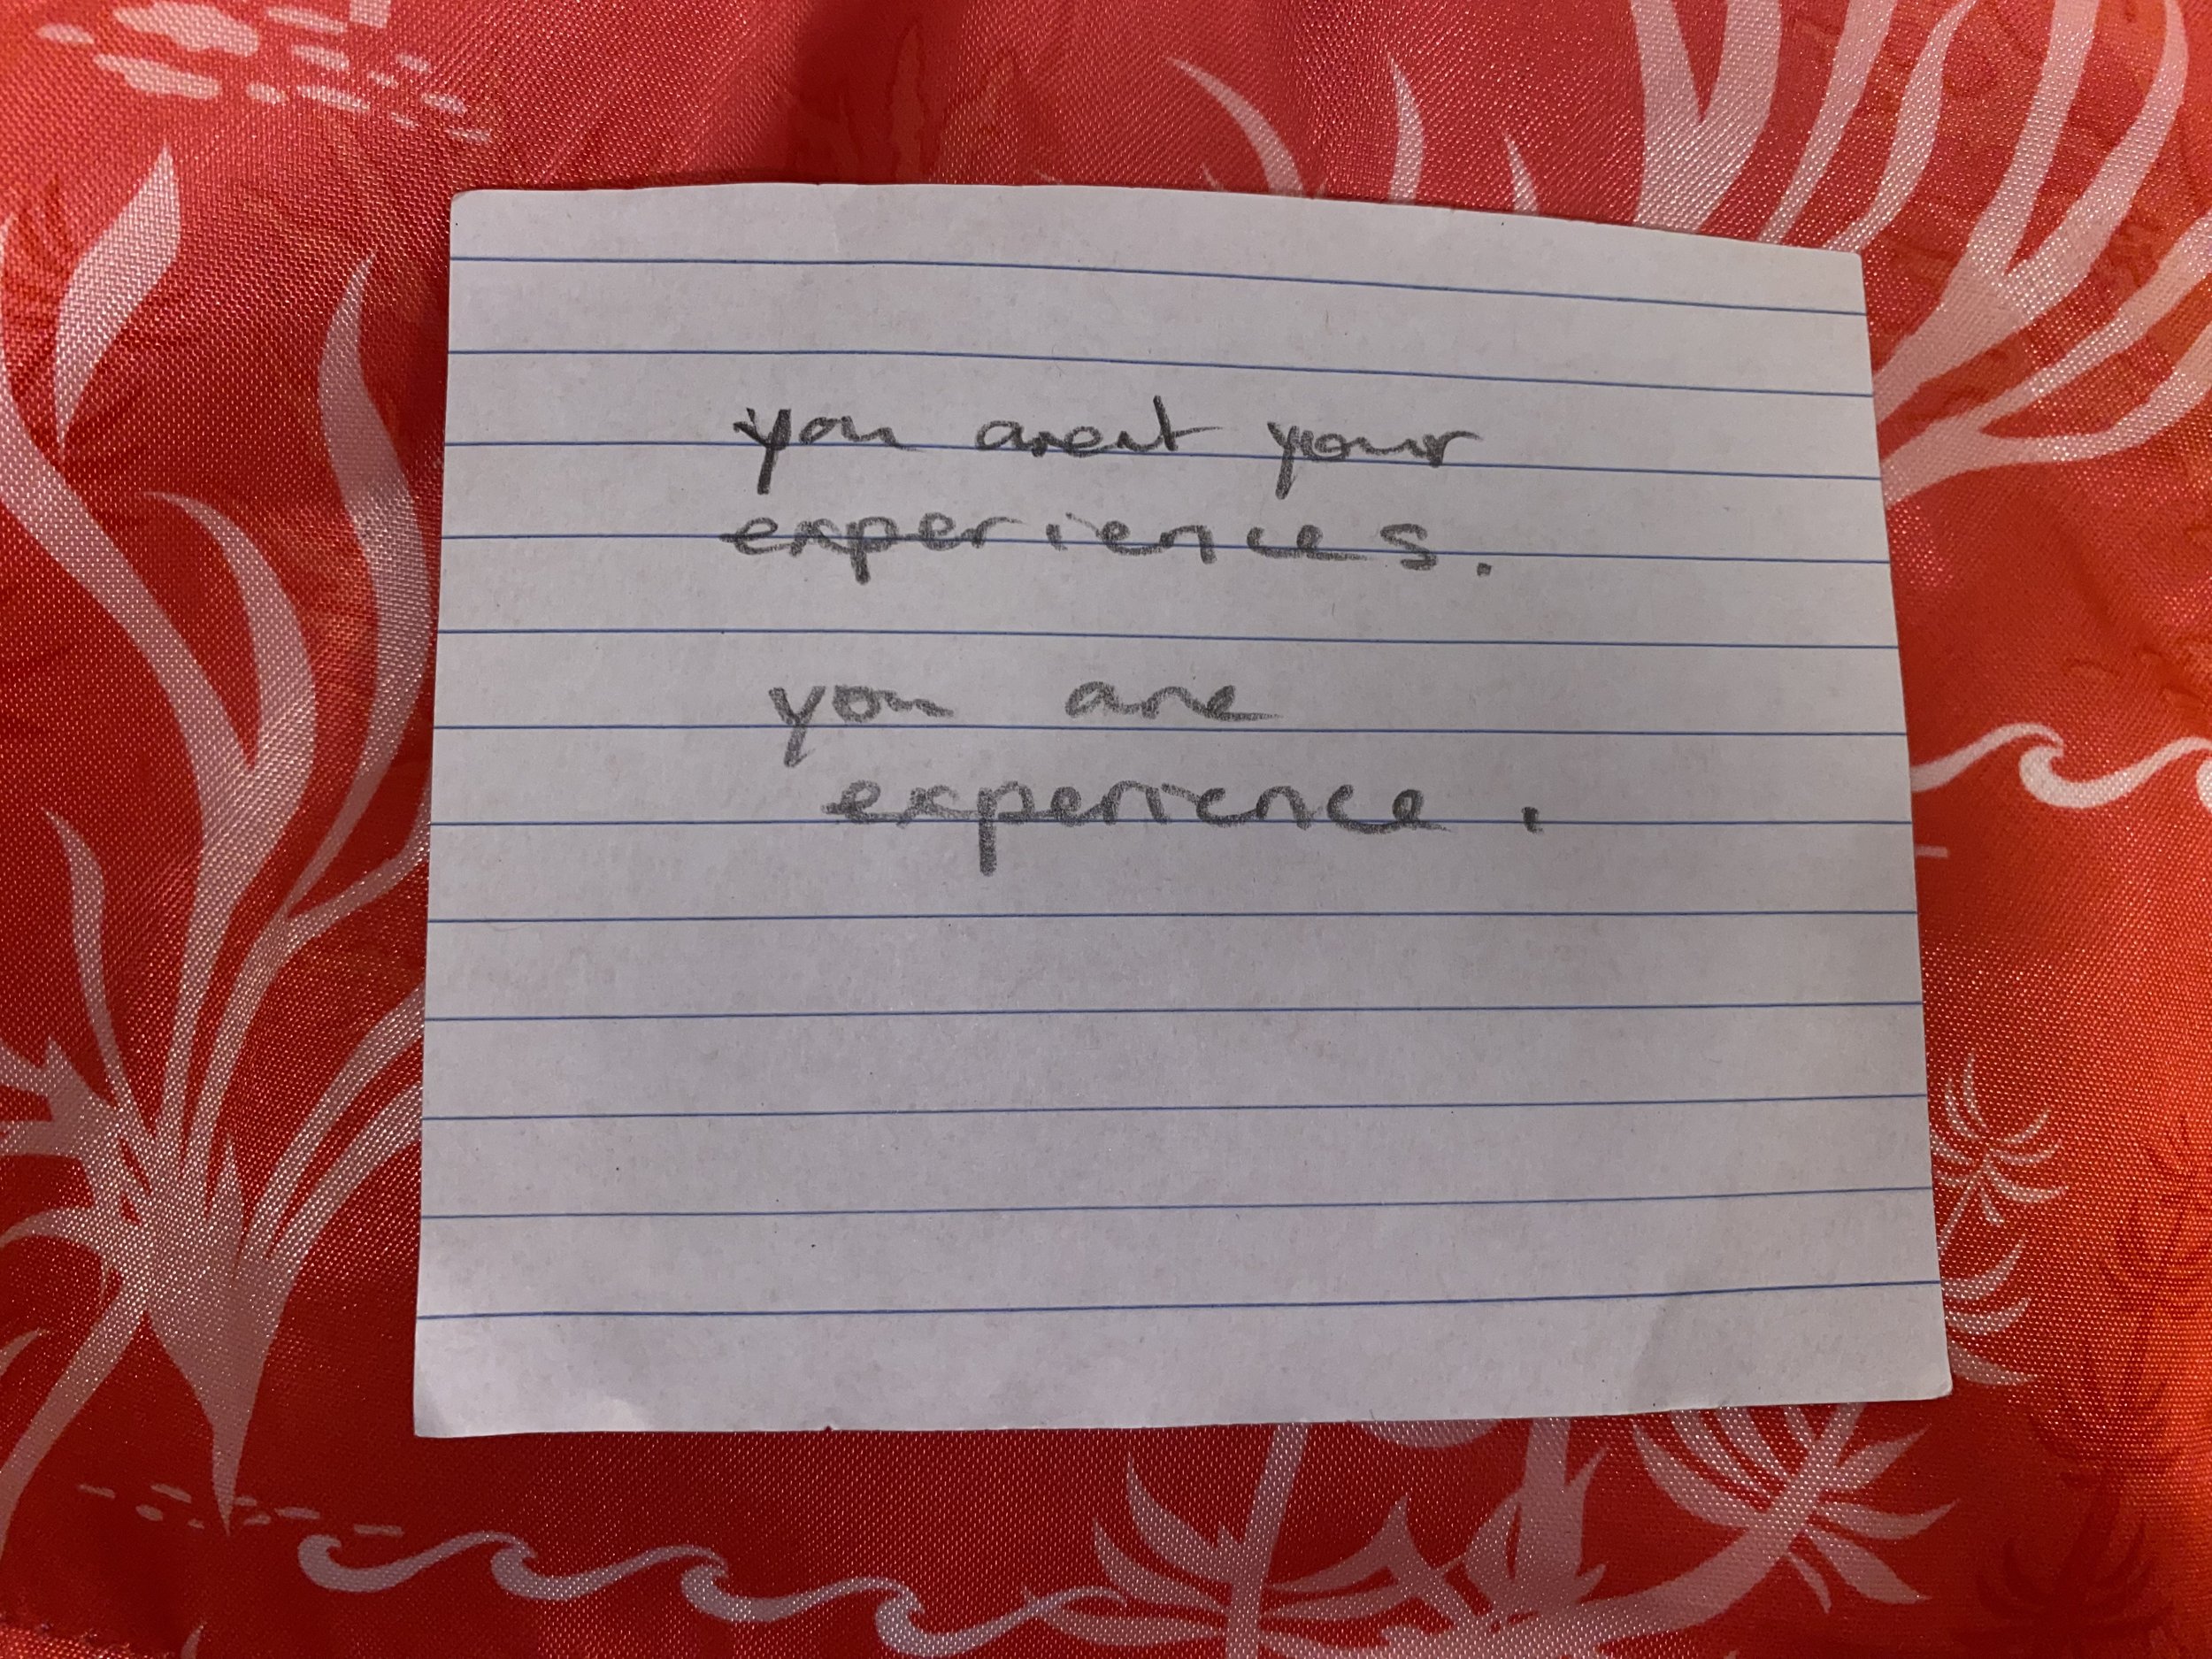 you arent your
experiences.
you are
experience.